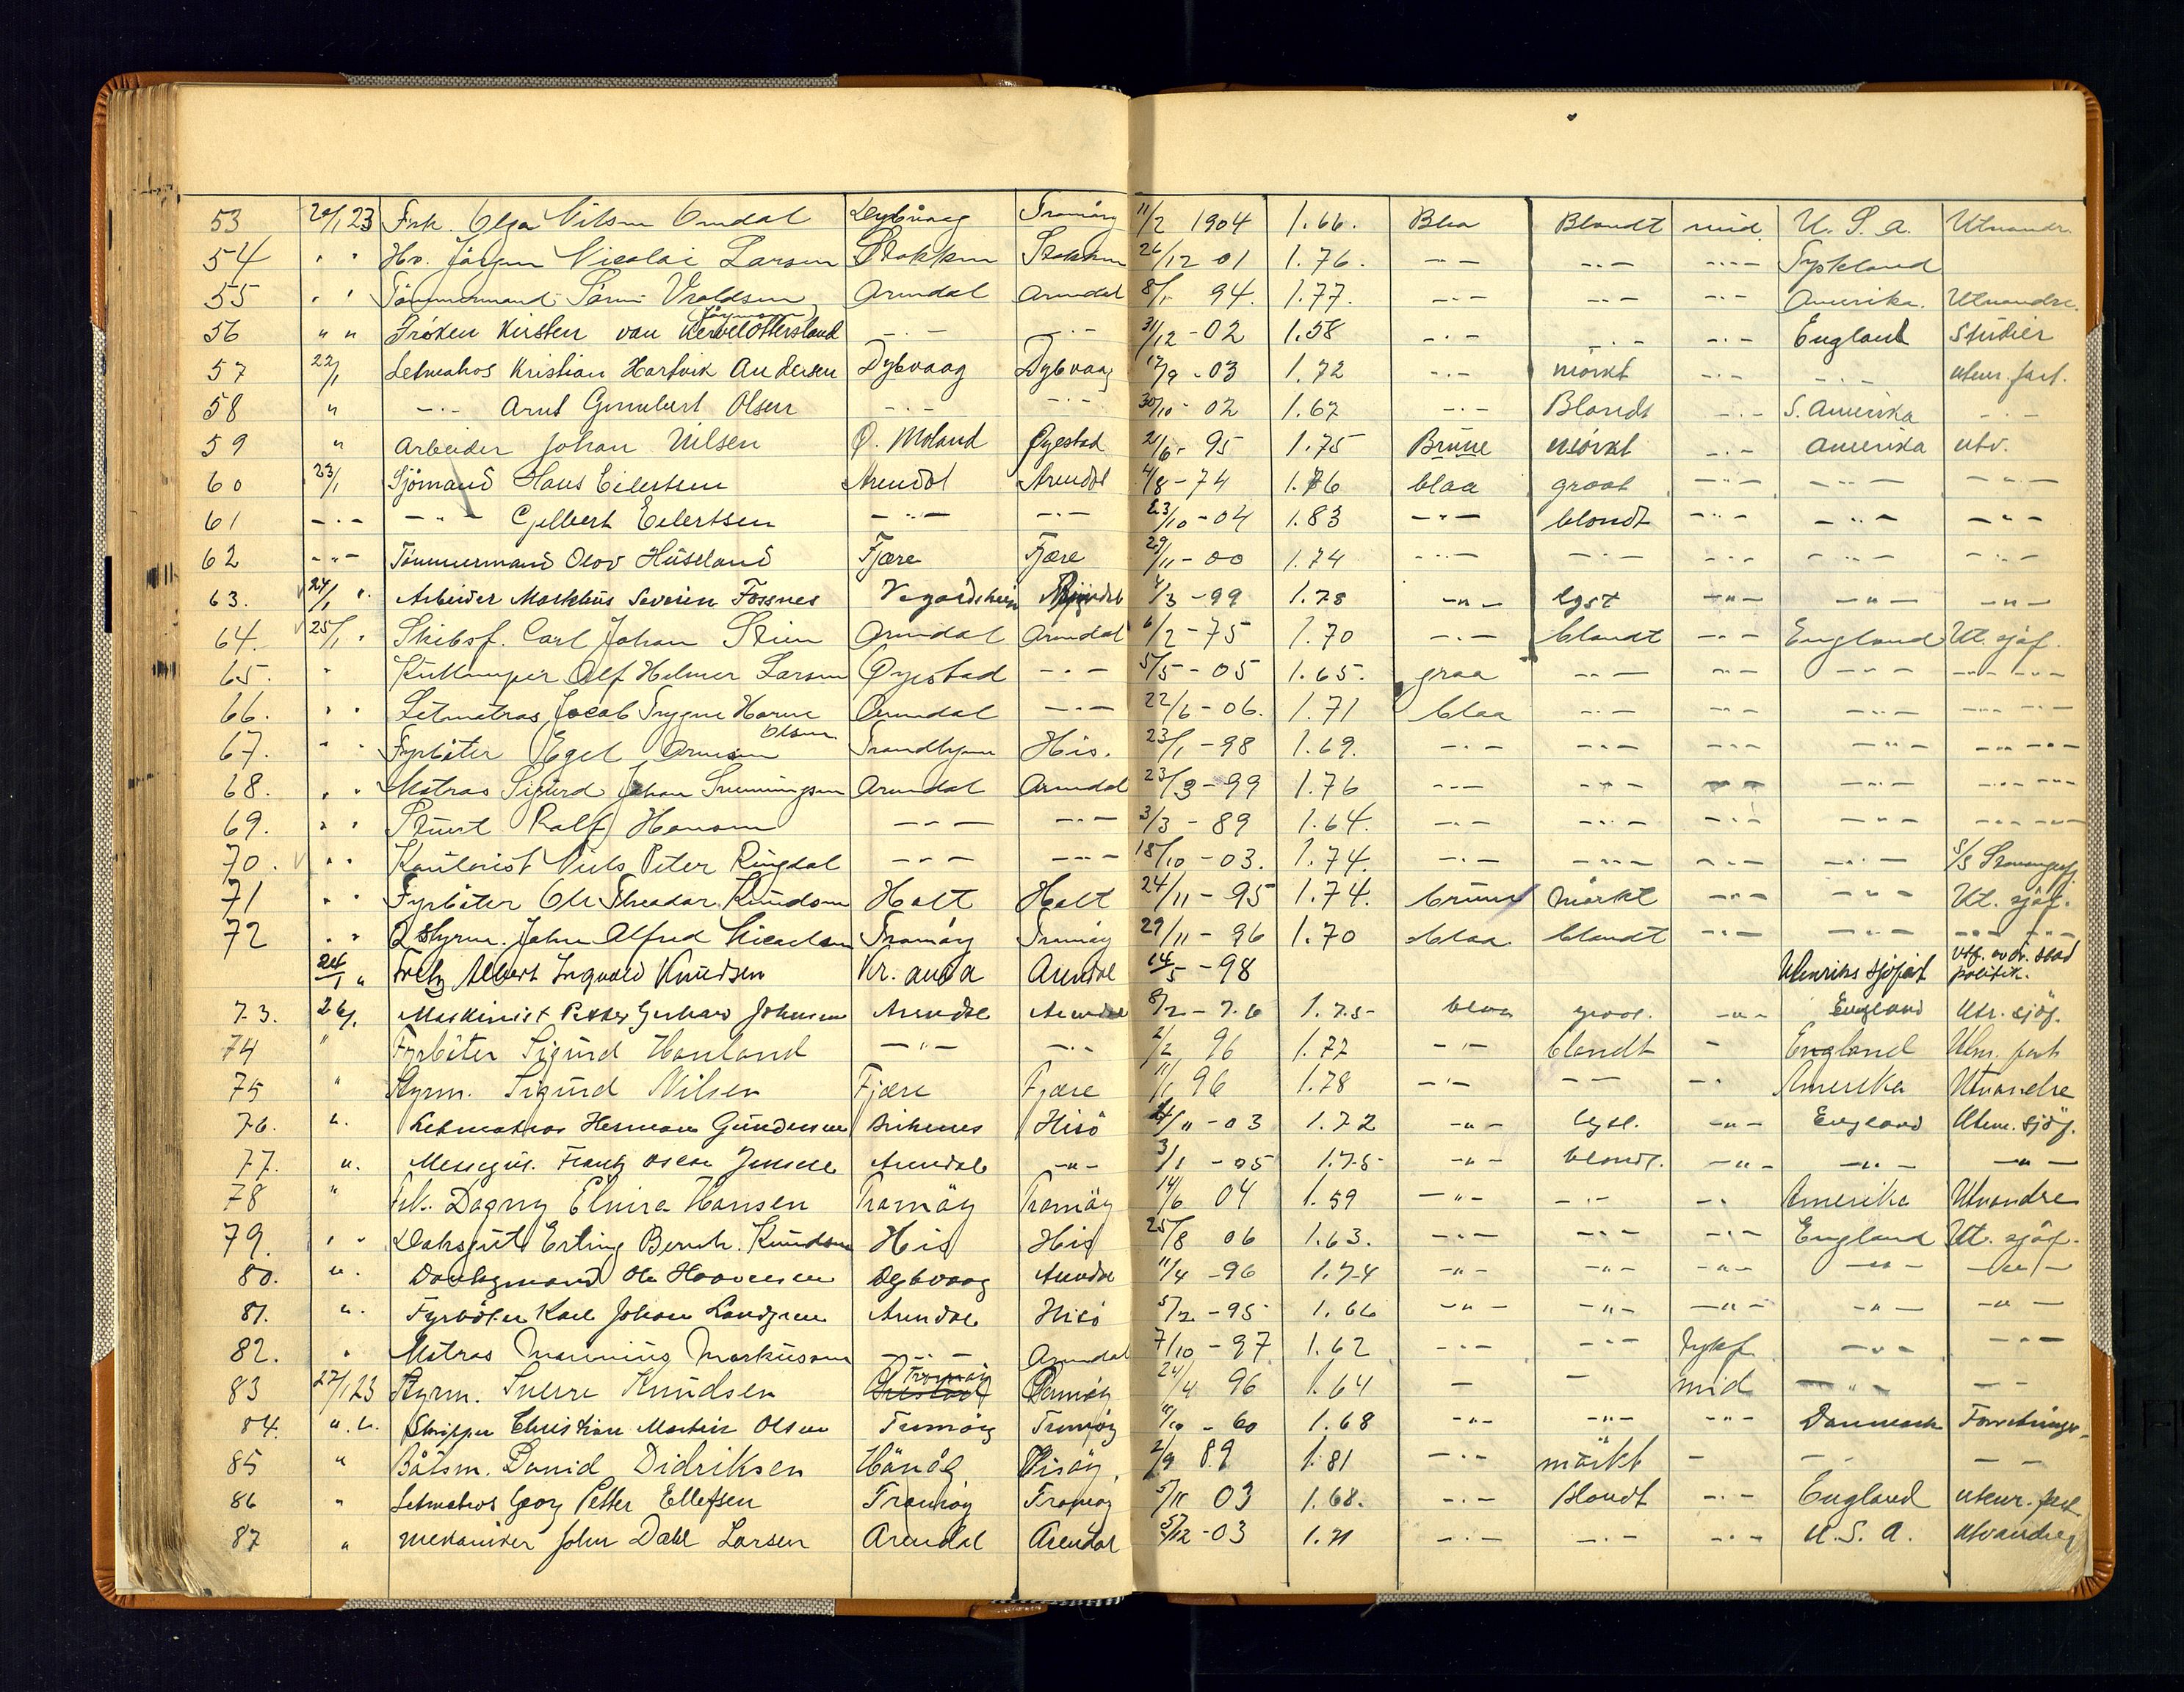 53 20/1 23 Frk. Olga Nilsen Omdal Dybvaag Tromöy 11/2 1904 1.66. Blaa Blondt mid. U. S. A. Utvandr.
54 " " Hr. Jörgen Nicolai Larsen Stokken Stokken 26/12 01 1.76. -"- -"- -"- Tyskland
55 " " Tömmermand Vraldsen Arendal Arendal 8/1 94. 1.77. -"- -"- -"- Amerika. Utvandre.
56 " " Fröken Kirsten van Kervel Ottersland -"- -"- 31/12 - 02 1.58 -"- -"- -"- England Studier
57 22/1 Letmatros Kristian Hartvik Andersen Dybvaag Dybvaag 17/9 - 03 1.72 -"- mörkt -"- -"- utenr. fart.
58 " -"- Arnt Olsen -"- -"- 30/10 - 02 1.67 -"- Blondt -"- S. Amerika -"-
59 " Arbeider Johan Nilsen Ø. Moland Øyestad 21/6 - 95 1.75 Brune mörkt -"- Amerika utv.
60 23/1 Sjömand Hans Eilertsen Arendal Arendal 4/8 - 74 1.76 blaa graat -"- -"- -"-
61 -"- -"- Gjelbert Eilertsen -"- -"- 23/10 - 04 1.83 -"- blondt -"- -"- -"-
62 -"- Tömmermand Olov Huseland Fjære Fjære 29/11 - 00 1.74 -"- -"- -"- -"- -"-
63. 24/1 ". Arbeider Markhus Severin Fossnes Vegardsheim 4/3 - 99 1.78 -"- lyst -"- -"- -"-
64. 25/1 " Skibsf. Carl Johan Stien Arendal Arendal 6/2 - 75 1.70 -"- blondt -"- England Ut. sjöf.
65. " Kullemper Alf Helmer Larsen Øyestad -"- 5/5 - 05 1.65. graa -"- -"- -"- -"-
66. " " Letmatros Jacob Trygve Horve Olsen Arendal -"- 22/6 - 06. 1.71 blaa -"- -"- -"- -"-
67. " " Fyrböter Egel Arnesen Trondhjem His. 23/1 - 98 1.69. -"- -"- -"- -"- -"-
68. " " Matros Sigurd Johan Svenningsen Arendal Arendal 23/3 - 99 1.76 -"- -"- -"- -"- -"-
69. " " Stuert Ralf Hansen -"- -"- 3/3 - 89 1.64. -"- -"- -"- -"- -"-
70. " " Kontorist Niels Peter Ringdal -"- -"- 18/10 - 03. 1.74. -"- -"- -"- -"- S/S
71 " " Fyrböter Ole Theodor Knudsen Holt Holt 24/11 - 95 1.74. brune mörkt -"- -"- Ut. sjöf.
72 " " 2 Styrm. John Alfred Tromöy Tromöy 29/11 - 96 1.70 blaa blondt -"- -"- -"-
24/1 " Fretz Albert Ingvald Knudsen Kr. sand Arendal 14/5 - 98 Utenriks sjöfart
73. 26/1 Maskinist Petter Gerhard Johnsen Arendal Arendal 8/2 - 76 1.75 blaa graat. -"- England Utr. sjöf.
74 " Fyrböter Sigurd Hauland -"- -"- 2/2 96 1.77 -"- blondt - England Utenr. fart
75 " Styrm. Sigurd Nilsen Fjære Fjære 11/1 96 1.78 -"- -"- -"- Amerika Utvandre
76. ". Letmatros Herman Gundersen Birkenes Hisö 4/11 - 03 1.72 -"- lyst. -"- England Utenr. sjöf.
77. ". Messegut. Frantz Oscar Jensen Arendal -"- 3/1 - 05 1.75 -"- blondt. -"- -"- -"-
78 " Frk. Dagny Elvira Hansen Tromöy Tromöy 14/6 04 1.59 -"- -"- -"- Amerika Utvandre
79. " " Daksgut Erling Bernh. Knudsen His His 25/8 06 1.63. -"- -"- -"- England Ut. sjöf.
80. ". Dæksmand Ole Haavensen Dybvaag Arendal 11/4 - 96 1.74 -"- -"- -"- -"- -"-
81. ". Fyrböter Karl Johan Landgren Arendal Hisö 5/2 - 95 1.66 -"- -"- -"- -"- -"-
82. " Matros Markusen -"- Arendal 7/10 - 97 1.62 -"- -"- -"- -"-
83 27/1 23 Styrm. Sverre Knudsen Tromöy Tromöy 24/4 96 1.64 - - mid -"-
84. " ". Skipper Christian Martin Olsen Tromöy Tromöy 11/10 - 60 1.68 -"- -"- -"- Danmark
85 " Båtsm. David Didriksen Hisöy, 2/9 89 1.81 -"- mörkt - -"- -"-
86 " Letmatros Georg Petter Ellefsen Tromöy Tromöy 5/11 03 1.68. -"- Blondt -"- England utenr. fart
87 " Mekaniker John Dahl Larsen Arendal Arendal 5/12 - 03 1.71 -"- -"- -"- U. S. A. Utvandre